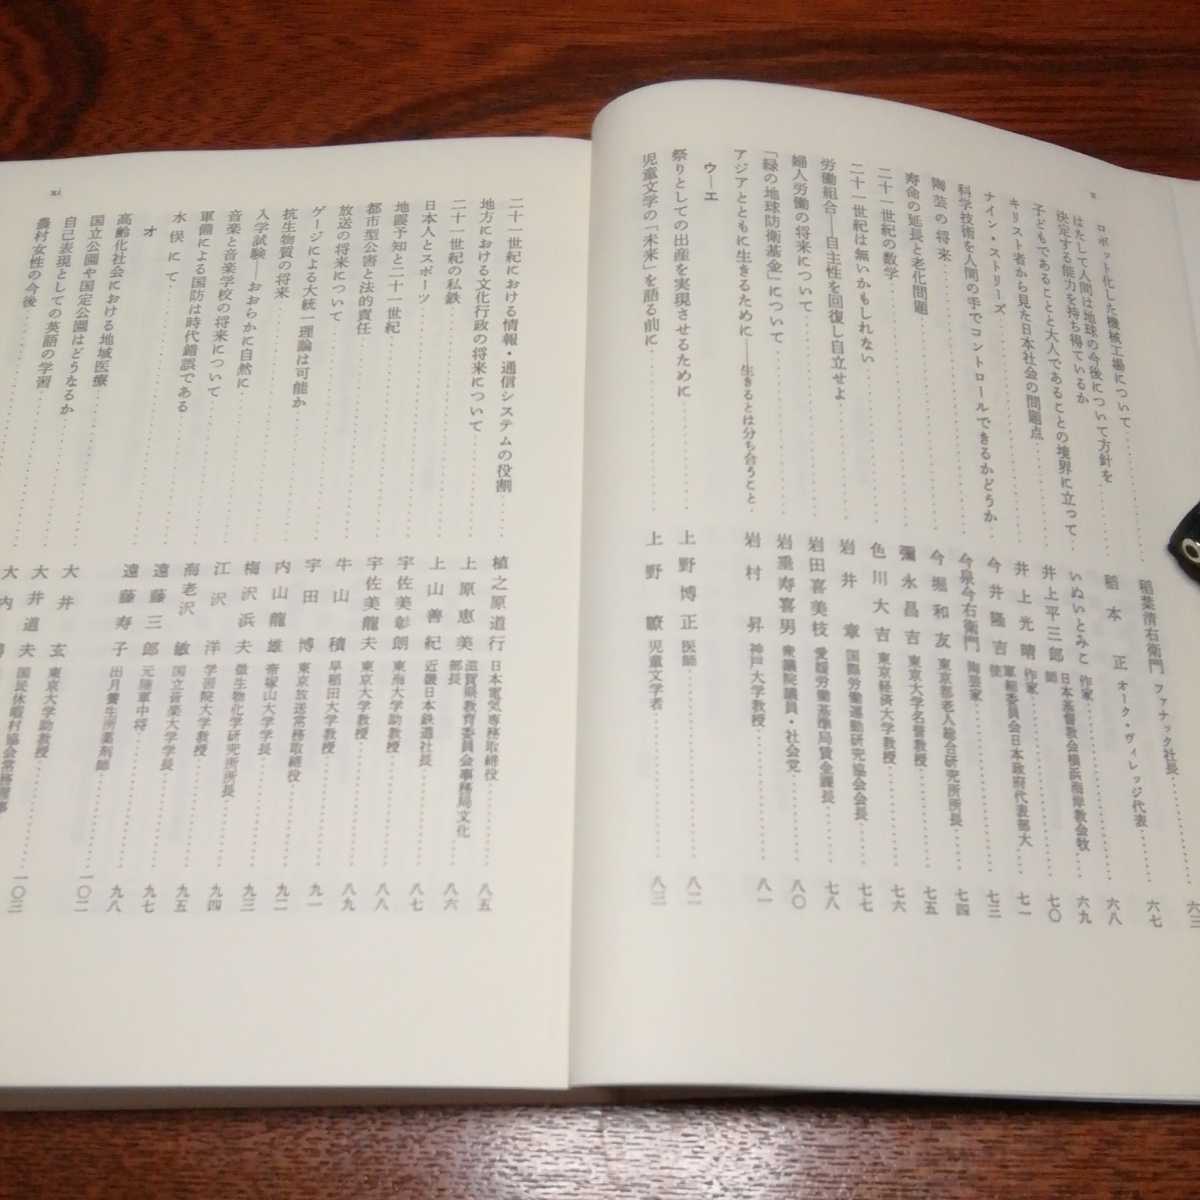 x
ロボット化した機械工場について 稲葉清右衛門 ファナック社長 六三
はたして人間は地球の今後について方針を
決定する能力を持ち得ているか 稲本正 オーク・ヴィレッジ代表 六七
子どもであることと大人であることの境界に立って いぬいとみこ 作家 六八
キリスト者から見た日本社会の問題点 井上平三郎 日本基督教会横浜海岸教会牧師 六九
ナイン・ストリーズ 井上光晴 作家 七〇
科学技術を人間の手でコントロールできるかどうか 今井隆吉 軍縮委員会日本政府代表部大使 七一
陶芸の将来 今泉今右衛門 陶芸家 七三
寿命の延長と老化問題 今堀和友 東京都老人総合研究所所長 七四
二十一世紀の数学 彌永昌吉 東京大学名誉教授 七五
二十一世紀は無いかもしれない 色川大吉 東京経済大学教授 七六
労働組合―自主性を回復し自立せよ 岩井章 国際労働運動研究協会会長 七七
婦人労働の将来について 岩田喜美枝 愛媛労働基準局賃金課長 七八
「緑の地球防衛基金」について 岩垂寿喜男 衆議院議員・社会党 八〇
アジアとともに生きるために――生きるとは分ち合うこと 岩村昇 神戸大学教授 八一
ウ―エ
祭りとしての出産を実現させるために 上野博正 医師 八二
児童文学の「未来」を語る前に 上野瞭 児童文学者 八三
二十一世紀における情報・通信システムの役割 植之原道行 日本電気専務取締役 八五
地方における文化行政の将来について 上原恵美 滋賀県教育委員会事務局文化部長 八六
二十一世紀の私鉄 上山善紀 近畿日本鉄道社長 八七
日本人とスポーツ 宇佐美彰朗 東海大学助教授
地震予知と二十一世紀 宇佐美龍夫 東京大学教授 八八
都市型公害と法的責任 牛山積 早稲田大学教授 八九
放送の将来について 宇田博 東京放送常務取締役 九一
ゲージによる大統一理論は可能か 内山龍雄 帝塚山大学学長 九二
抗生物質の将来 梅沢浜夫 微生物化学研究所所長 九三
入学試験―おおらかに自然に 江沢洋 学習院大学教授 九四
音楽と音楽学校の将来について 海老沢敏 国立音楽大学学長 九五
軍備による国防は時代錯誤である 遠藤三郎 元陸軍中将 九七
水俣にて 遠藤寿子 出月養生所薬剤師 九八
オ
高齢化社会における地域医療 大井玄 東京大学助教授 一〇二
国立公園や国定公園はどうなるか 大井道夫 国民休暇村協会常務理事 一〇三
自己表現としての英語の学習 大内
農村女性の今後
xi